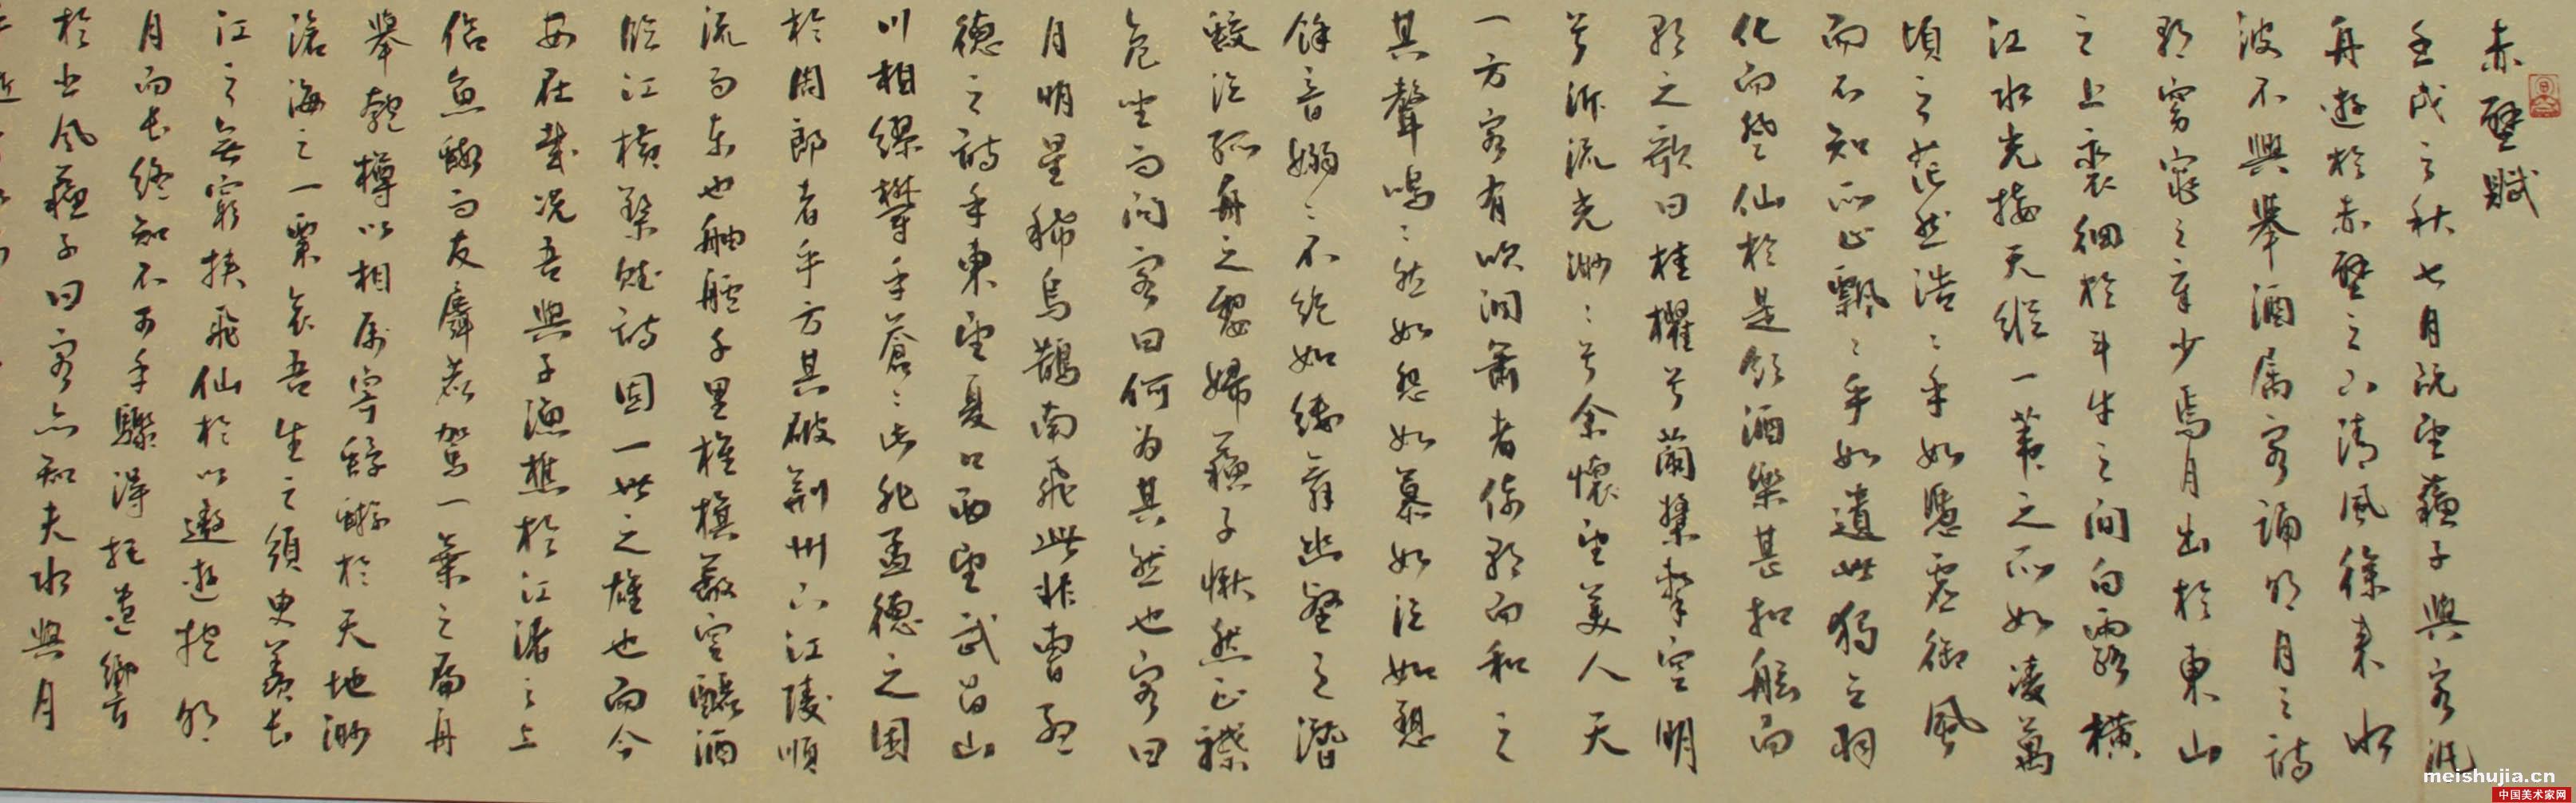 赤壁賦
壬戌之秋七月既望蘇子與客泛
舟遊於赤壁之下清風徐來水
波不興舉酒屬客誦明月之詩
歌窈窕之章少焉月出於東山
之上裴徊於斗牛之間白露橫
江水光接天縱一葦之所如凌萬
頃之茫然浩々乎如憑虛御風
而不知所止飄々乎如遺世獨立羽
化而登仙於是飲酒樂甚扣舷而
歌之歌曰桂櫂兮蘭槳擊空明
兮泝流光渺々兮余懷望美人天
一方客有吹洞簫者倚歌而和之
其聲嗚々然如怨如慕如泣如愬
餘音嫋々不絕如縷舞幽壑之潛
蛟泣孤舟之嫠婦蘇子愀然正襟
危坐而問客曰何为其然也客曰
月明星稀烏鵲南飛此非曹孟
德之詩乎東望夏口西望武昌山
川相繆鬱乎蒼々此非孟德之困
於周郎者乎方其破荊州下江陵順
流而东也舳艫千里旌旗蔽空釃酒
臨江橫槊賦詩固一世之雄也而今
安在哉况吾與子漁樵於江渚之上
侶魚蝦而友麋鹿駕一葉之扁舟
舉匏樽以相屬寄蜉蝣於天地渺
滄海之一粟哀吾生之須臾羨長
江之無窮挾飛仙於以遨遊抱明
月而長終知不可乎驟得托遺響
於悲風蘇子曰客亦知夫水與月
meishujia.cn
中国美术家网